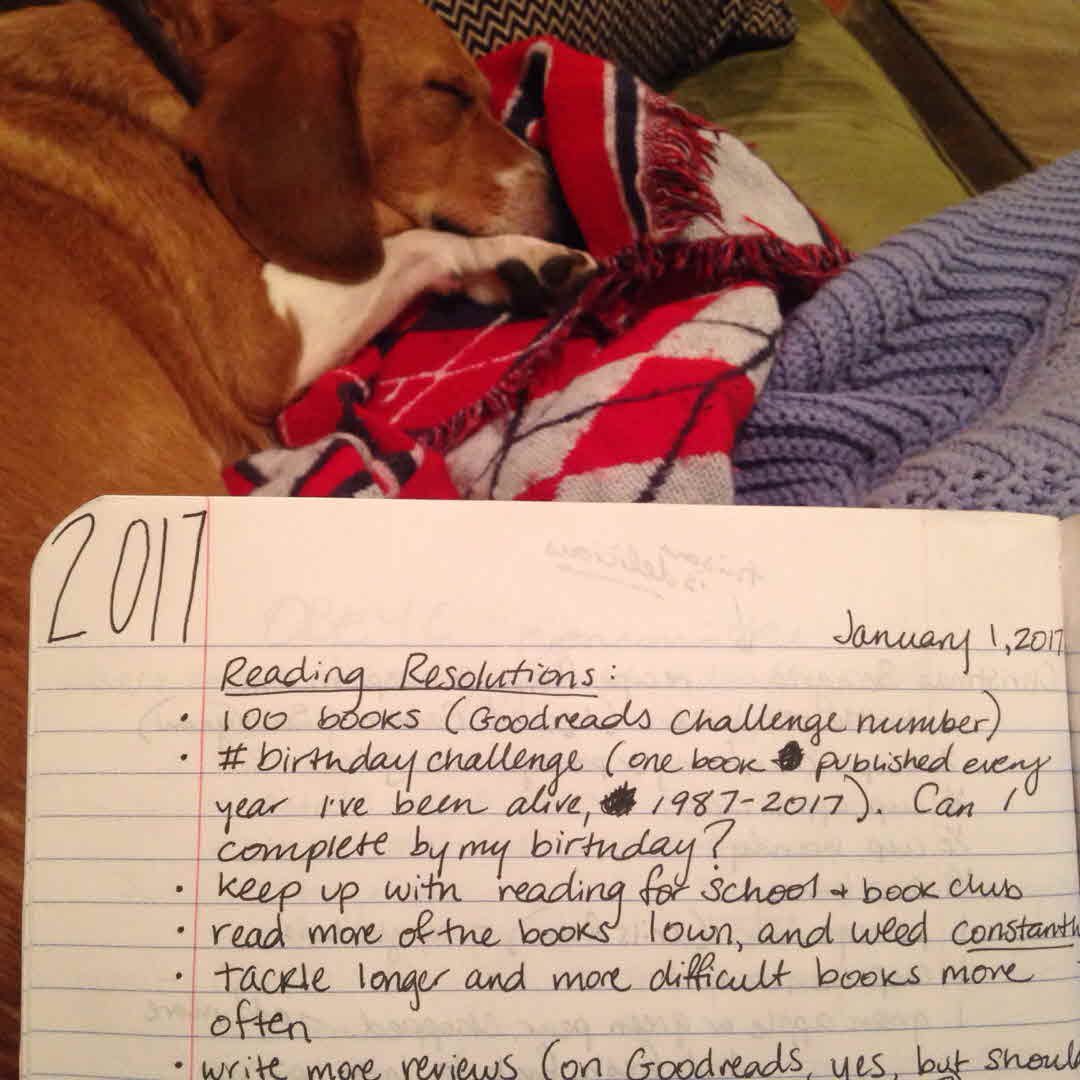 2017
January 1, 2017
Reading Resolutions:
• 100 books (Goodreads Challenge number)
• #birthdaychallenge (one book published every
year I've been alive, 1987-2017). Can I
complete by my birthday?
• keep up with reading for school + book club
• read more of the books I own, and weed constantly
• tackle longer and more difficult books more
often
• write more reviews (on Goodreads, yes, but should